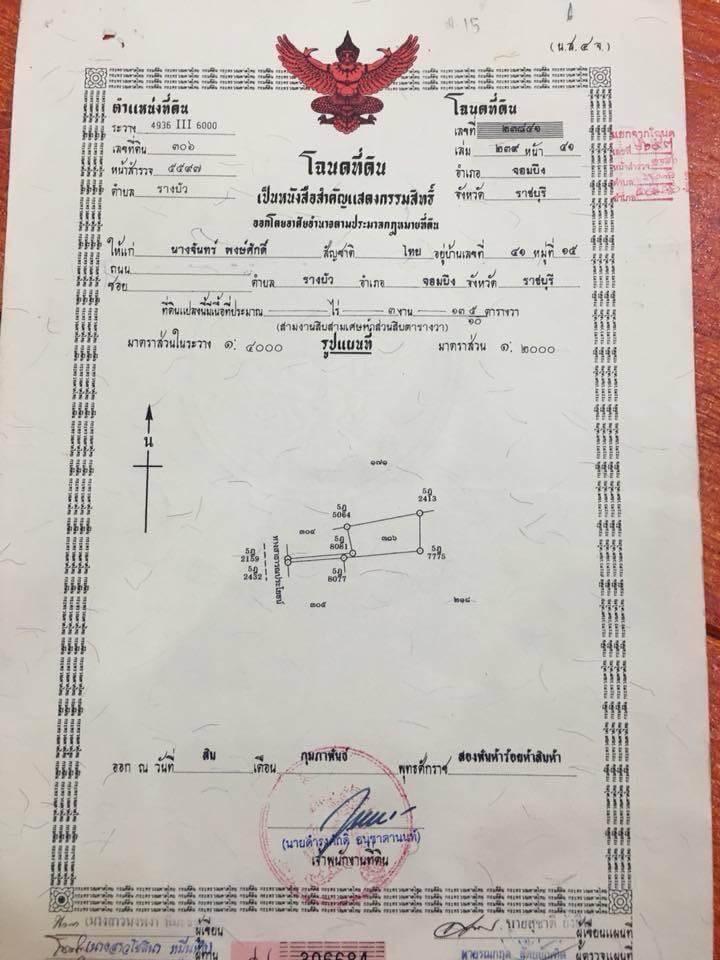 (น.ส. ๔ จ.)
ตำแหน่งที่ดิน
ระวาง 4936 III 6000
เลขที่ดิน ๓๐๖
หน้าสำรวจ ๕๕๙๗
ตำบล รางบัว
โฉนดที่ดิน
เลขที่ ๒๓๘๔๑
เล่ม ๒๓๙ หน้า ๔๑
อำเภอ จอมบึง
จังหวัด ราชบุรี
แยกจากโฉนด
เลขที่
หน้าสำรวจ
ตำบล
อำเภอ
โฉนดที่ดิน
เป็นหนังสือสำคัญแสดงกรรมสิทธิ์
ออกโดยอาศัยอำนาจตามประมวลกฎหมายที่ดิน
ให้แก่ นางจันทร์ พงษ์ศักดิ์ สัญชาติ ไทย อยู่บ้านเลขที่ ๔๑ หมู่ที่ ๑๕
ถนน
ซอย ตำบล รางบัว อำเภอ จอมบึง จังหวัด ราชบุรี
ที่ดินแปลงนี้มีเนื้อที่ประมาณ ไร่ ๓ งาน ๑๓ ๕/๑๐ ตารางวา
(สามงานสิบสามเศษห้าส่วนสิบตารางวา)
มาตราส่วนในระวาง ๑: ๔๐๐๐ รูปแผนที่ มาตราส่วน ๑: ๒๐๐๐
น
๑๗๑
5ฎ
2413
5ฎ
5064
๓๐๔
5ฎ
8081
๓๐๖
5ฎ
2159
5ฎ
7775
5ฎ
2432
5ฎ
8077
ทางสาธารณประโยชน์
๓๐๕
๒๑๘
ออก ณ วันที่ สิบ เดือน กุมภาพันธ์ พุทธศักราช สองพันห้าร้อยห้าสิบห้า
(นายดำรงศักดิ์ อนุชาตานนท์)
เจ้าพนักงานที่ดิน
ผู้เขียน
นายสุชาติ
ผู้เขียนแผนที่
ผู้ทาน
306684
ผู้ตรวจแผนที่